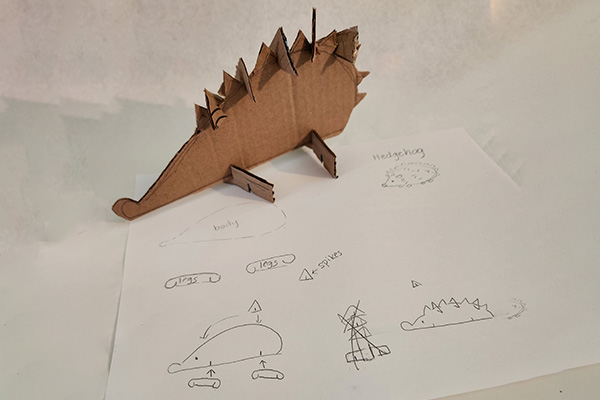 Hedgehog
body
legs
legs
spikes